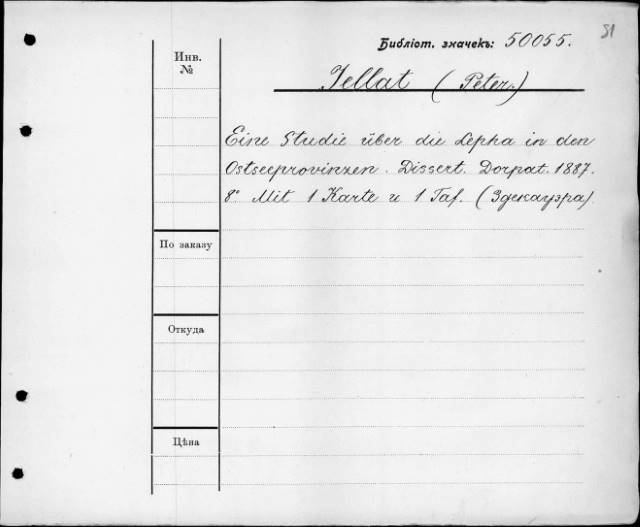 81
Библіот. значекъ: 50055.
Инв.
№
Jellat (Peter.)
Eine Studie über die Lepha in den
Ostseeprovinzen. Dissert. Dorpat. 1887.
8° Mit 1 Karte u 1 Taf. (Здекауэра).
По заказу
Откуда
Цѣна